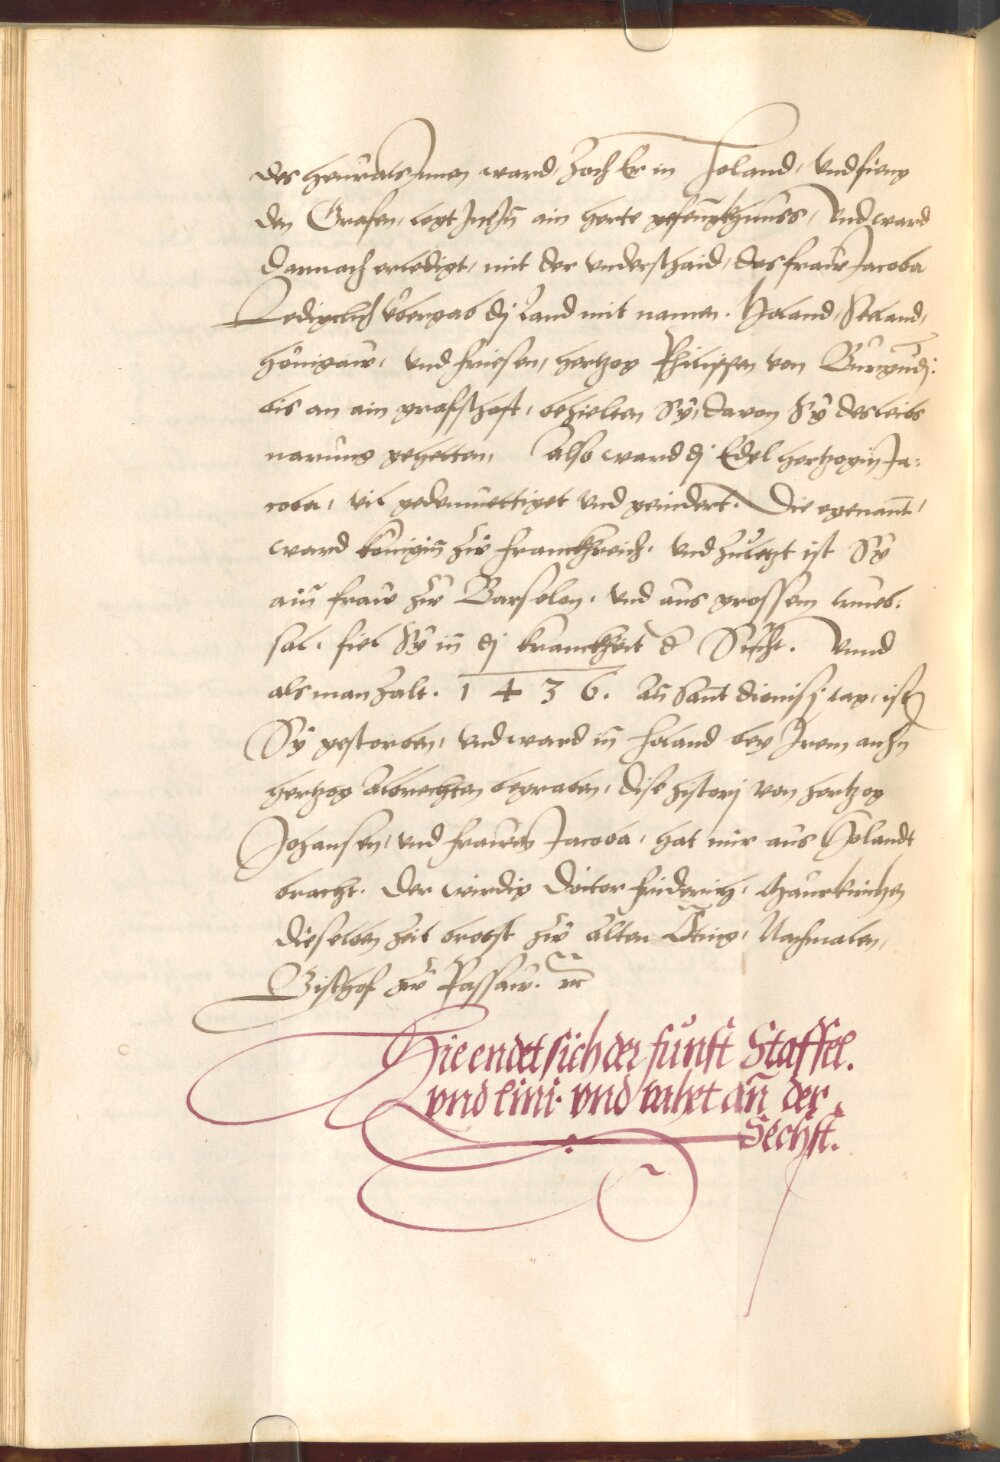 des heurats Innen ward, Zoch Er in Holand, Vnd fieng
den Grafen, legt In In̄ ain herte gefenngkhnuss, Vnd ward
Darnach erledigt, mit der vnderschaid, das fraw Jacoba
Lediglich vbergab dj Land mit namen. Holand, Seeland,
Hönigaw, vnd friesen, hertzog Philippen von Burgundj.
bis an ain grafschaft, behielten Sÿ, davon Sÿ des leibs
narung gehetten, Also ward dj Edel hertzogin Ja-
coba, vil gedemuettiget vnd gemindert. Die egenan̄t,
ward königin̄ zw̆ franckhreich. vnd zuletzt ist Sÿ
ain̄ fraw zw̆ Barselon. vnd aus grossem trueb-
sal. fiel Sÿ in̄ dj kranckheit d̕ Sucht. Vnnd
als man zalt. 1 4 3 6. An̄ Sannt dionisj tag, ist
Sÿ gestorben, vnd ward in̄ Holand bey Irem anhn
hertzog Albrechten begraben, Dise histori von hertzog
Johansen, vnd frawen Jacoba, hat mir aus Holandt
bracht. Der wirdig Doctor friderich, Maurkircher
dieselben Zeit brobst zw̆ Alten Öting, Nachmalen,
Bischof zw̆ Passaw.
Hie endet sich der funfft Staffel.
vnd lini. vnd vahet an̄ der
Sechst.